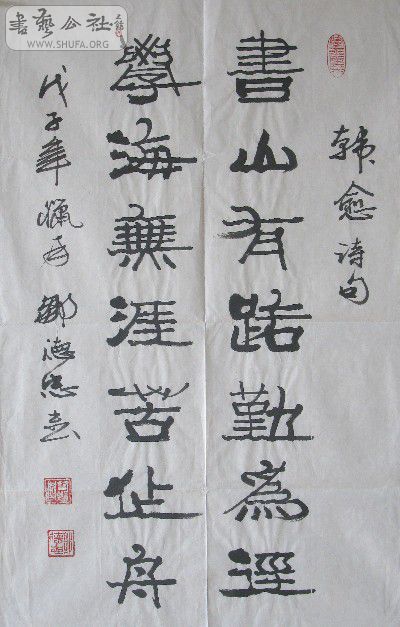 書藝公社
WWW.SHUFA.ORG
韩愈诗句
書山有路勤為逕
學海無涯苦作舟
戊子年